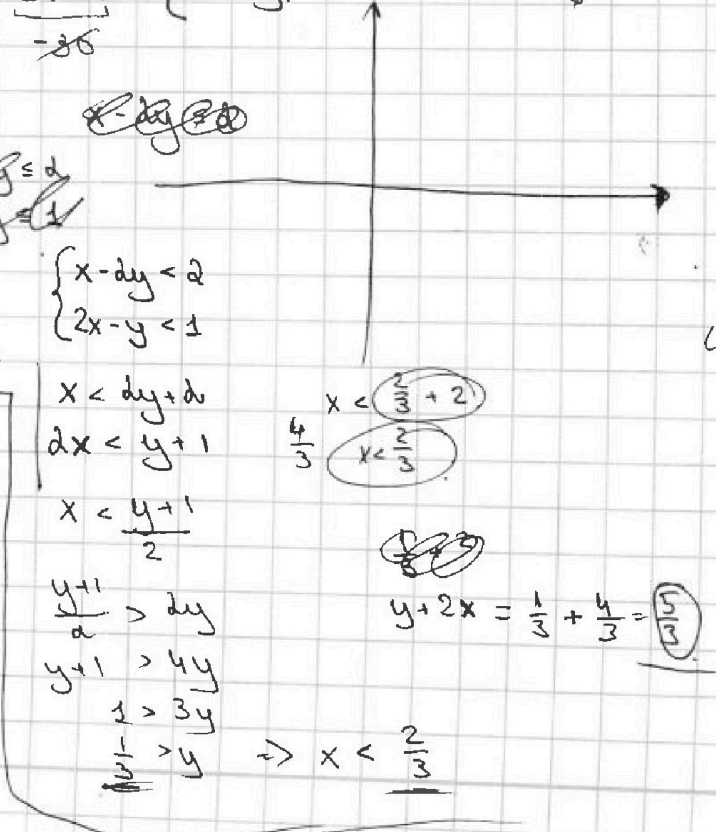 -36
x - 2y ≤ 2
y ≤ 2
≤ 1
{ x - 2y < 2
2x - y < 1
x < 2y + 2
2x < y + 1
x < (y+1)/2
(y+1)/2 > 2y
y+1 > 4y
1 > 3y
1/3 > y => x < 2/3
x < 2/3 + 2
4/3 x < 2/3
y + 2x = 1/3 + 4/3 = 5/3